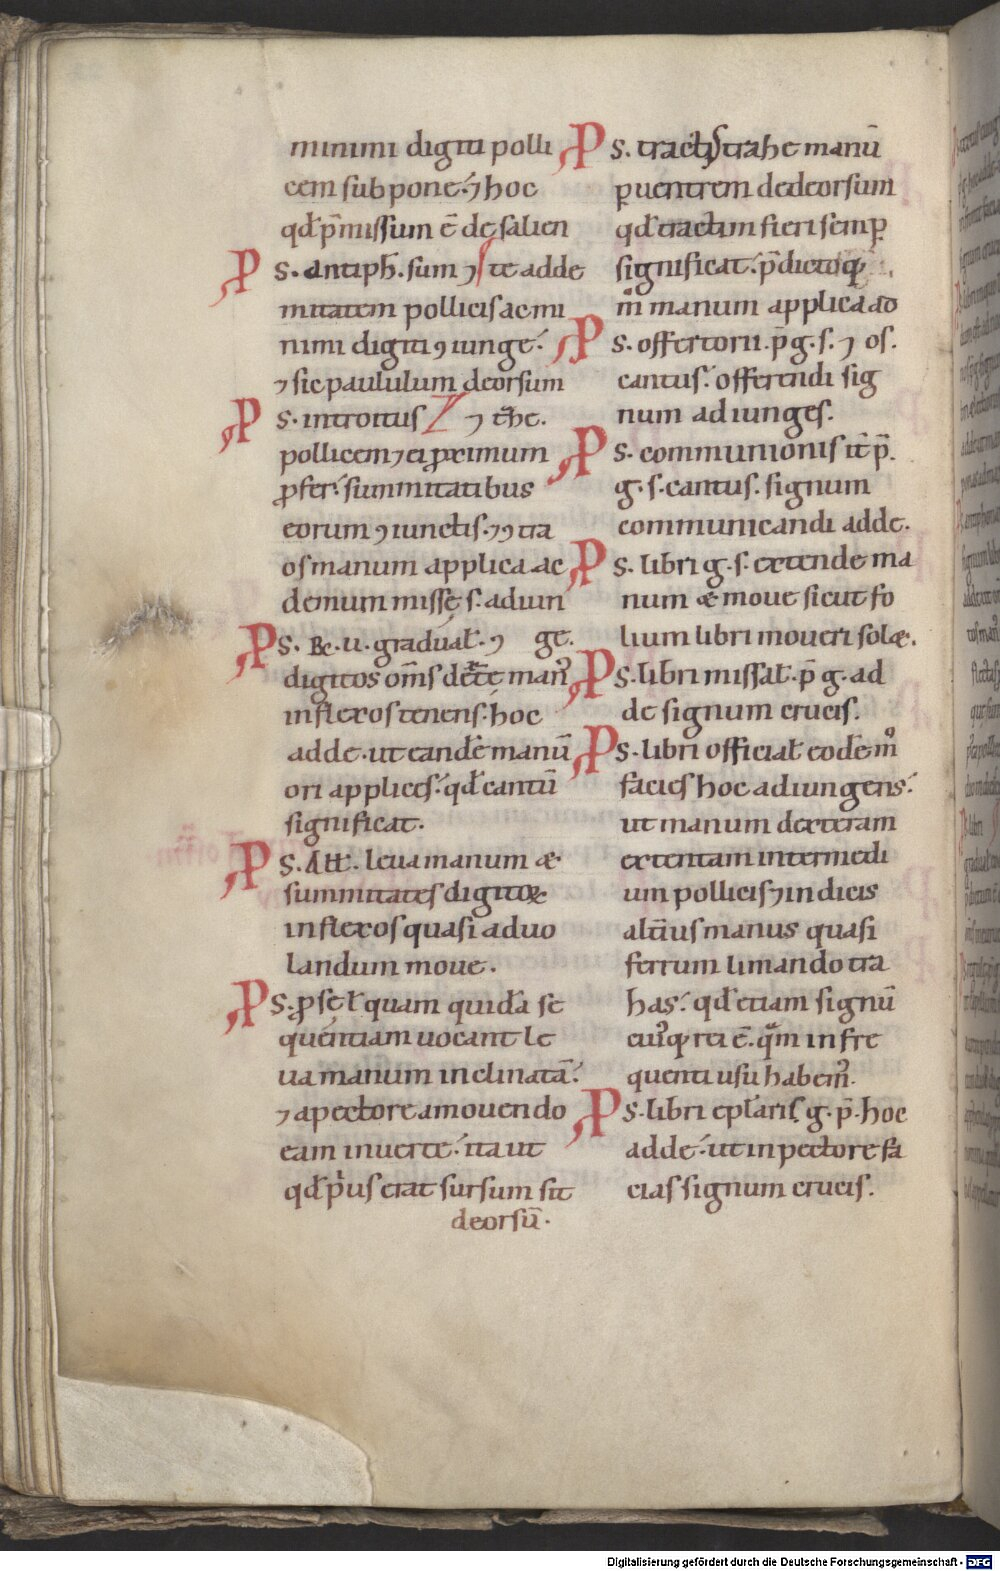 minimi digiti polli
cem subpone. ⁊ hoc
qđ p̄missum ē de salien
P S. antiph̄. sum ⁊ te adde
mitatem pollicis ac mi
nimi digiti ꝯiunge.
⁊ sic paululum deorsum
P S. introitus ⁊
pollicem ⁊ ei ꝓximum
ꝓfer. summitatibus
eorum ꝯiunctis. ⁊ ꝯtra
os manum applica ac
demum missę s. adiun
P S. R̄c. u. gradual̄. ⁊ ge.
digitos om̄s dext̄e man᷒
inflexos tenens. hoc
adde. ut eand̄e manū
ori applices. qđ cantū
significat.
P S. Alł. leua manum æ
summitates digitoꝝ
inflexos quasi ad uo
landum moue.
P S. ꝓ seq̄ł quam quidā se
quentiam uocant le
ua manum inclinatā.
⁊ a pectore amouendo
eam inuerte. ita ut
qđ p̍us erat sursum sit
deorsū.
P S. tract᷒ trahe manū
p̱ uentrem dedeorsum
qđ tractim fieri semp̱
significat. p̄dictoq;
m̊ manum applica ad
P S. offertorii. p̄ g. s. ⁊ os.
cantus. offerendi sig
num adiunges.
P S. communionis it̄ p̄.
g. s. cantus. signum
communicandi adde.
P S. libri g. s. extende ma
num æ moue sicut fo
lium libri moueri solæ.
P S. libri missał. p̄ g. ad
de signum crucis.
P S. libri officiał eod̄e m̊
facies hoc adiungens.
ut manum dexteram
extentam inter medi
um pollicis ⁊ indicis
alt̄ius manus quasi
ferrum limando tra
has. qđ etiam signū
cui᷒q; rei ē. q̄m in fre
quenti usu habem᷒.
P S. libri epłaris. g. p̄. hoc
adde. ut in pectore fa
cias signum crucis.
Digitalisierung gefördert durch die Deutsche Forschungsgemeinschaft - DFG